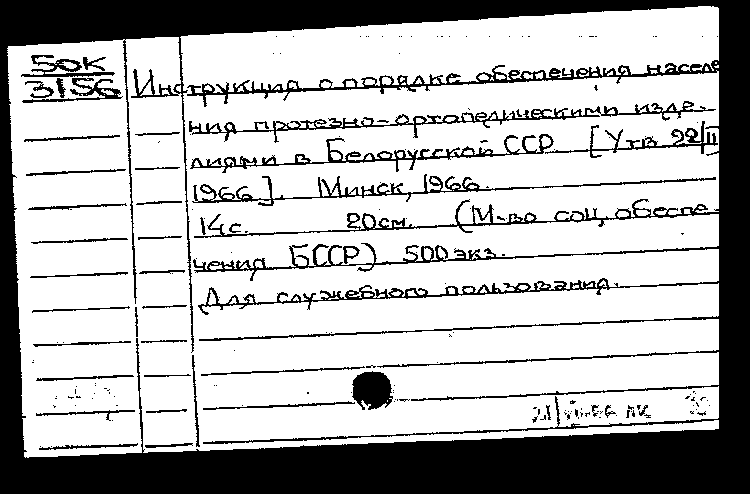 50К
3156
Инструкция о порядке обеспечения населе
ния протезно-ортопедическими изде-
лиями в Белорусской ССР. [Утв 22/II
1966]. Минск, 1966.
14с. 20см. (М-во соц. обеспе-
чения БССР) 500 экз.
Для служебного пользования.